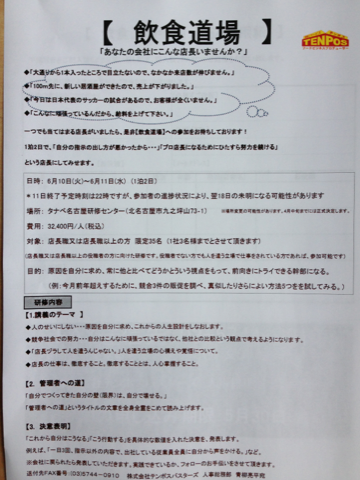 【 飲食道場 】
TENPOS
「あなたの会社にこんな店長いませんか?」
◆「大通りから1本入ったところで目立たないので、なかなか来店数が伸びません。」
◆「100m先に、新しい居酒屋ができたので、売上が下がりました。」
◆「今日は日本代表のサッカーの試合があるので、お客様が全いません。」
◆「こんなに頑張っているんだから、給料を上げて下さい。」
一つでも当てはまる店長がいましたら、是非【飲食道場】への参加をお待ちしております!
1泊2日で、「自分の指示の出し方が悪かったから・・・」「プロ店長になるためにひたすら努力を続ける」
という店長にしてみせます。
日時: 6月10日(火)~6月11日(水) (1泊2日)
*11日終了予定時刻は22時ですが、参加者の進捗状況により、翌18日の未明になる可能性があります
場所: タナベ名古屋研修センター(北名古屋市九之坪山73-1) ※場所変更の可能性があります。4月中旬までには正式決定します。
費用: 32,400円/人(税込)
対象: 店長職又は店長職以上の方 限定35名 (1社3名様までとさせて頂きます)
(店長職又は店長職以上の役職者の方に向けた研修です。役職者でない方でも人を違う立場で仕事をされている方であれば、参加可能です)
目的: 原因を自分に求め、常に他と比べてどうかという視点をもって、前向きにトライできる幹部になる。
(例:今月前年超えするために、競合3件の販促を調べ、真似したりさらによい方法5つをを試してみる。)
研修内容
【1.講義のテーマ 】
◆人のせいにしない・・・原因を自分に求め、これからの人生設計をしなおします。
◆競争社会での努力・・・自分はこんなに頑張っているではなく、他社との比較という観点で考えるようになります。
◆「店長ヅラして人を違うんじゃない。」人を違う立場の心構えや覚悟について。
◆店長の仕事は、徹底すること。徹底することとは、人心掌握すること。
【2. 管理者への道】
「自分でつくってきた自分の壁(限界)は、自分で壊せる。」
「管理者への道」というタイトルの文章を全身全霊をこめて読み上げます。
【3. 決意表明】
「これから自分はこうなる」「こう行動する」を具体的な数値を入れた決意を、発表します。
例えば、「一日3回、指示以外の内容で、出社している従業員全員に自分から声をかける。」など。
※会社に戻られたら発表していただきます。実践できているか、フォローのお手伝いをさせて頂きます。
送付先FAX番号:(03)5744-0910 株式会社テンポスバスターズ 人事総務部